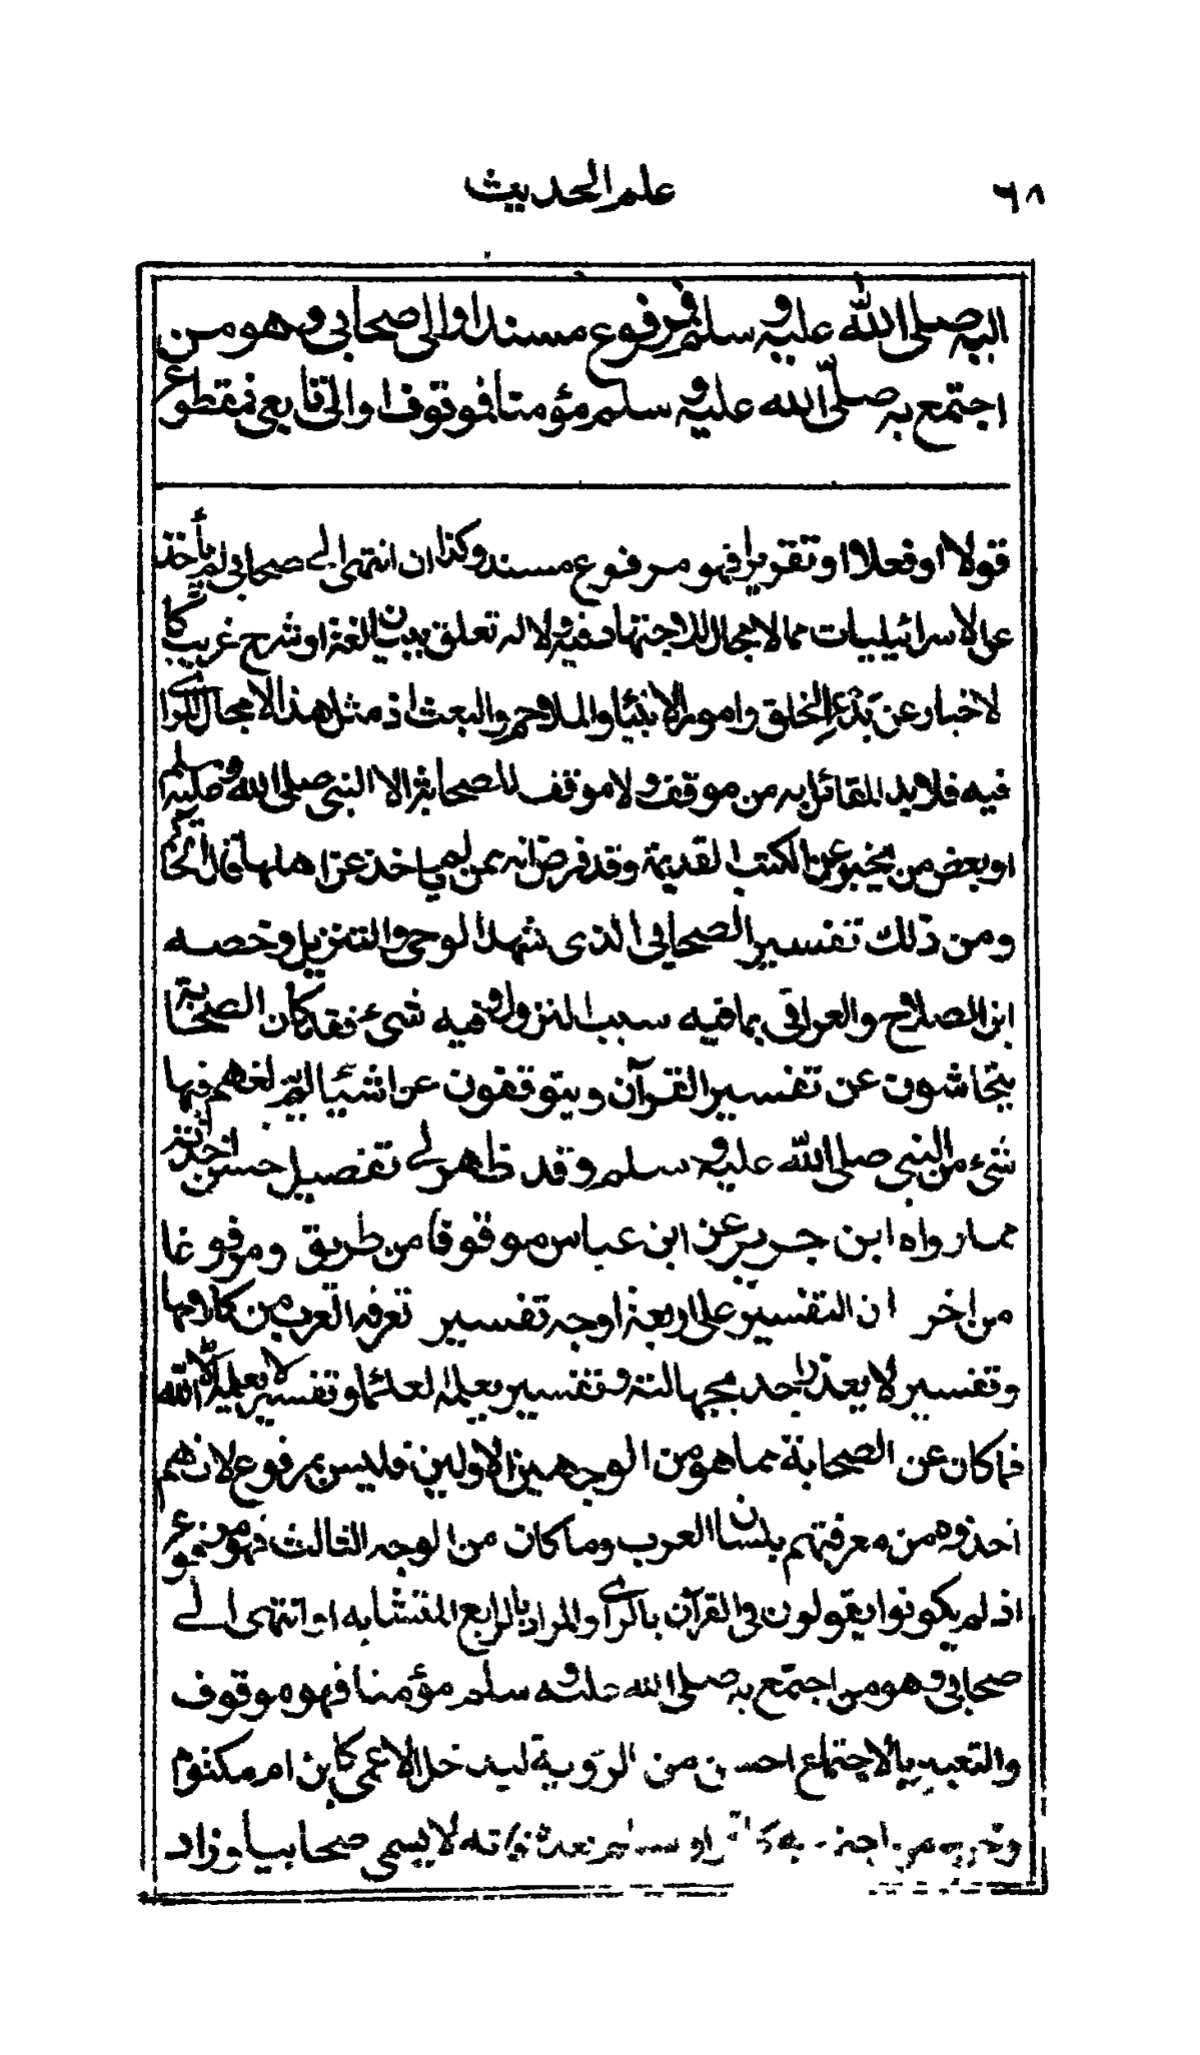 ٦٨ علم الحديث
اليه صلى الله عليه وسلم فمرفوع مسندا والى صحابى وهو من
اجتمع به صلى الله عليه وسلم مؤمنا فموقوف او الى تابعى فمقطوع
قولا او فعلا او تقريرا فهو مرفوع مسند وكذا ان انتهى الى صحابى لم يأخذ
عن الاسرائيليات مما لا مجال للاجتهاد فيه ولا له تعلق ببيان لغة او شرح غريب كا
لاخبار عن بدء الخلق وامور الانبياء والملاحم والبعث اذ مثل هذا لا مجال للراى
فيه فلا بد للقائل به من موقف ولا موقف للصحابة الا النبى صلى الله عليه وسلم
او بعض من يخبر عن الكتب القديمة وقد فرض انه ممن لم ياخذ عن اهلها قال الحاكم
ومن ذلك تفسير الصحابى الذى شهد الوحى والتنزيل وخصه
ابن الصلاح والعراقى بما فيه سبب النزول وفيه شىء فقد كان الصحابة
يتحاشون عن تفسير القرآن ويتوقفون عن اشياء لم يبلغهم فيها
شىء من النبى صلى الله عليه وسلم وقد ظهر لى تفصيل حسن اخذته
مما رواه ابن جرير عن ابن عباس موقوفا من طريق ومرفوعا
من اخر ان التفسير على اربعة اوجه تفسير تعرفه العرب من كلامها
وتفسير لا يعذر احد بجهالته وتفسير يعلمه العلماء وتفسير لا يعلمه الا الله
فما كان عن الصحابة مما هو من الوجهين الاولين فليس بمرفوع لانهم
اخذوه من معرفتهم بلسان العرب وما كان من الوجه الثالث فهو مرفوع
اذ لم يكونوا يقولون فى القرآن بالراى والمراد بالرابع المتشابه او انتهى الى
صحابى وهو من اجتمع به صلى الله عليه وسلم مؤمنا فهو موقوف
والتعبير بالاجتماع احسن من الرؤية ليدخل الاعمى كابن ام مكتوم
وخرج من اجتمع به كافرا واسلم بعد وفاته لا يسمى صحابيا وزاد